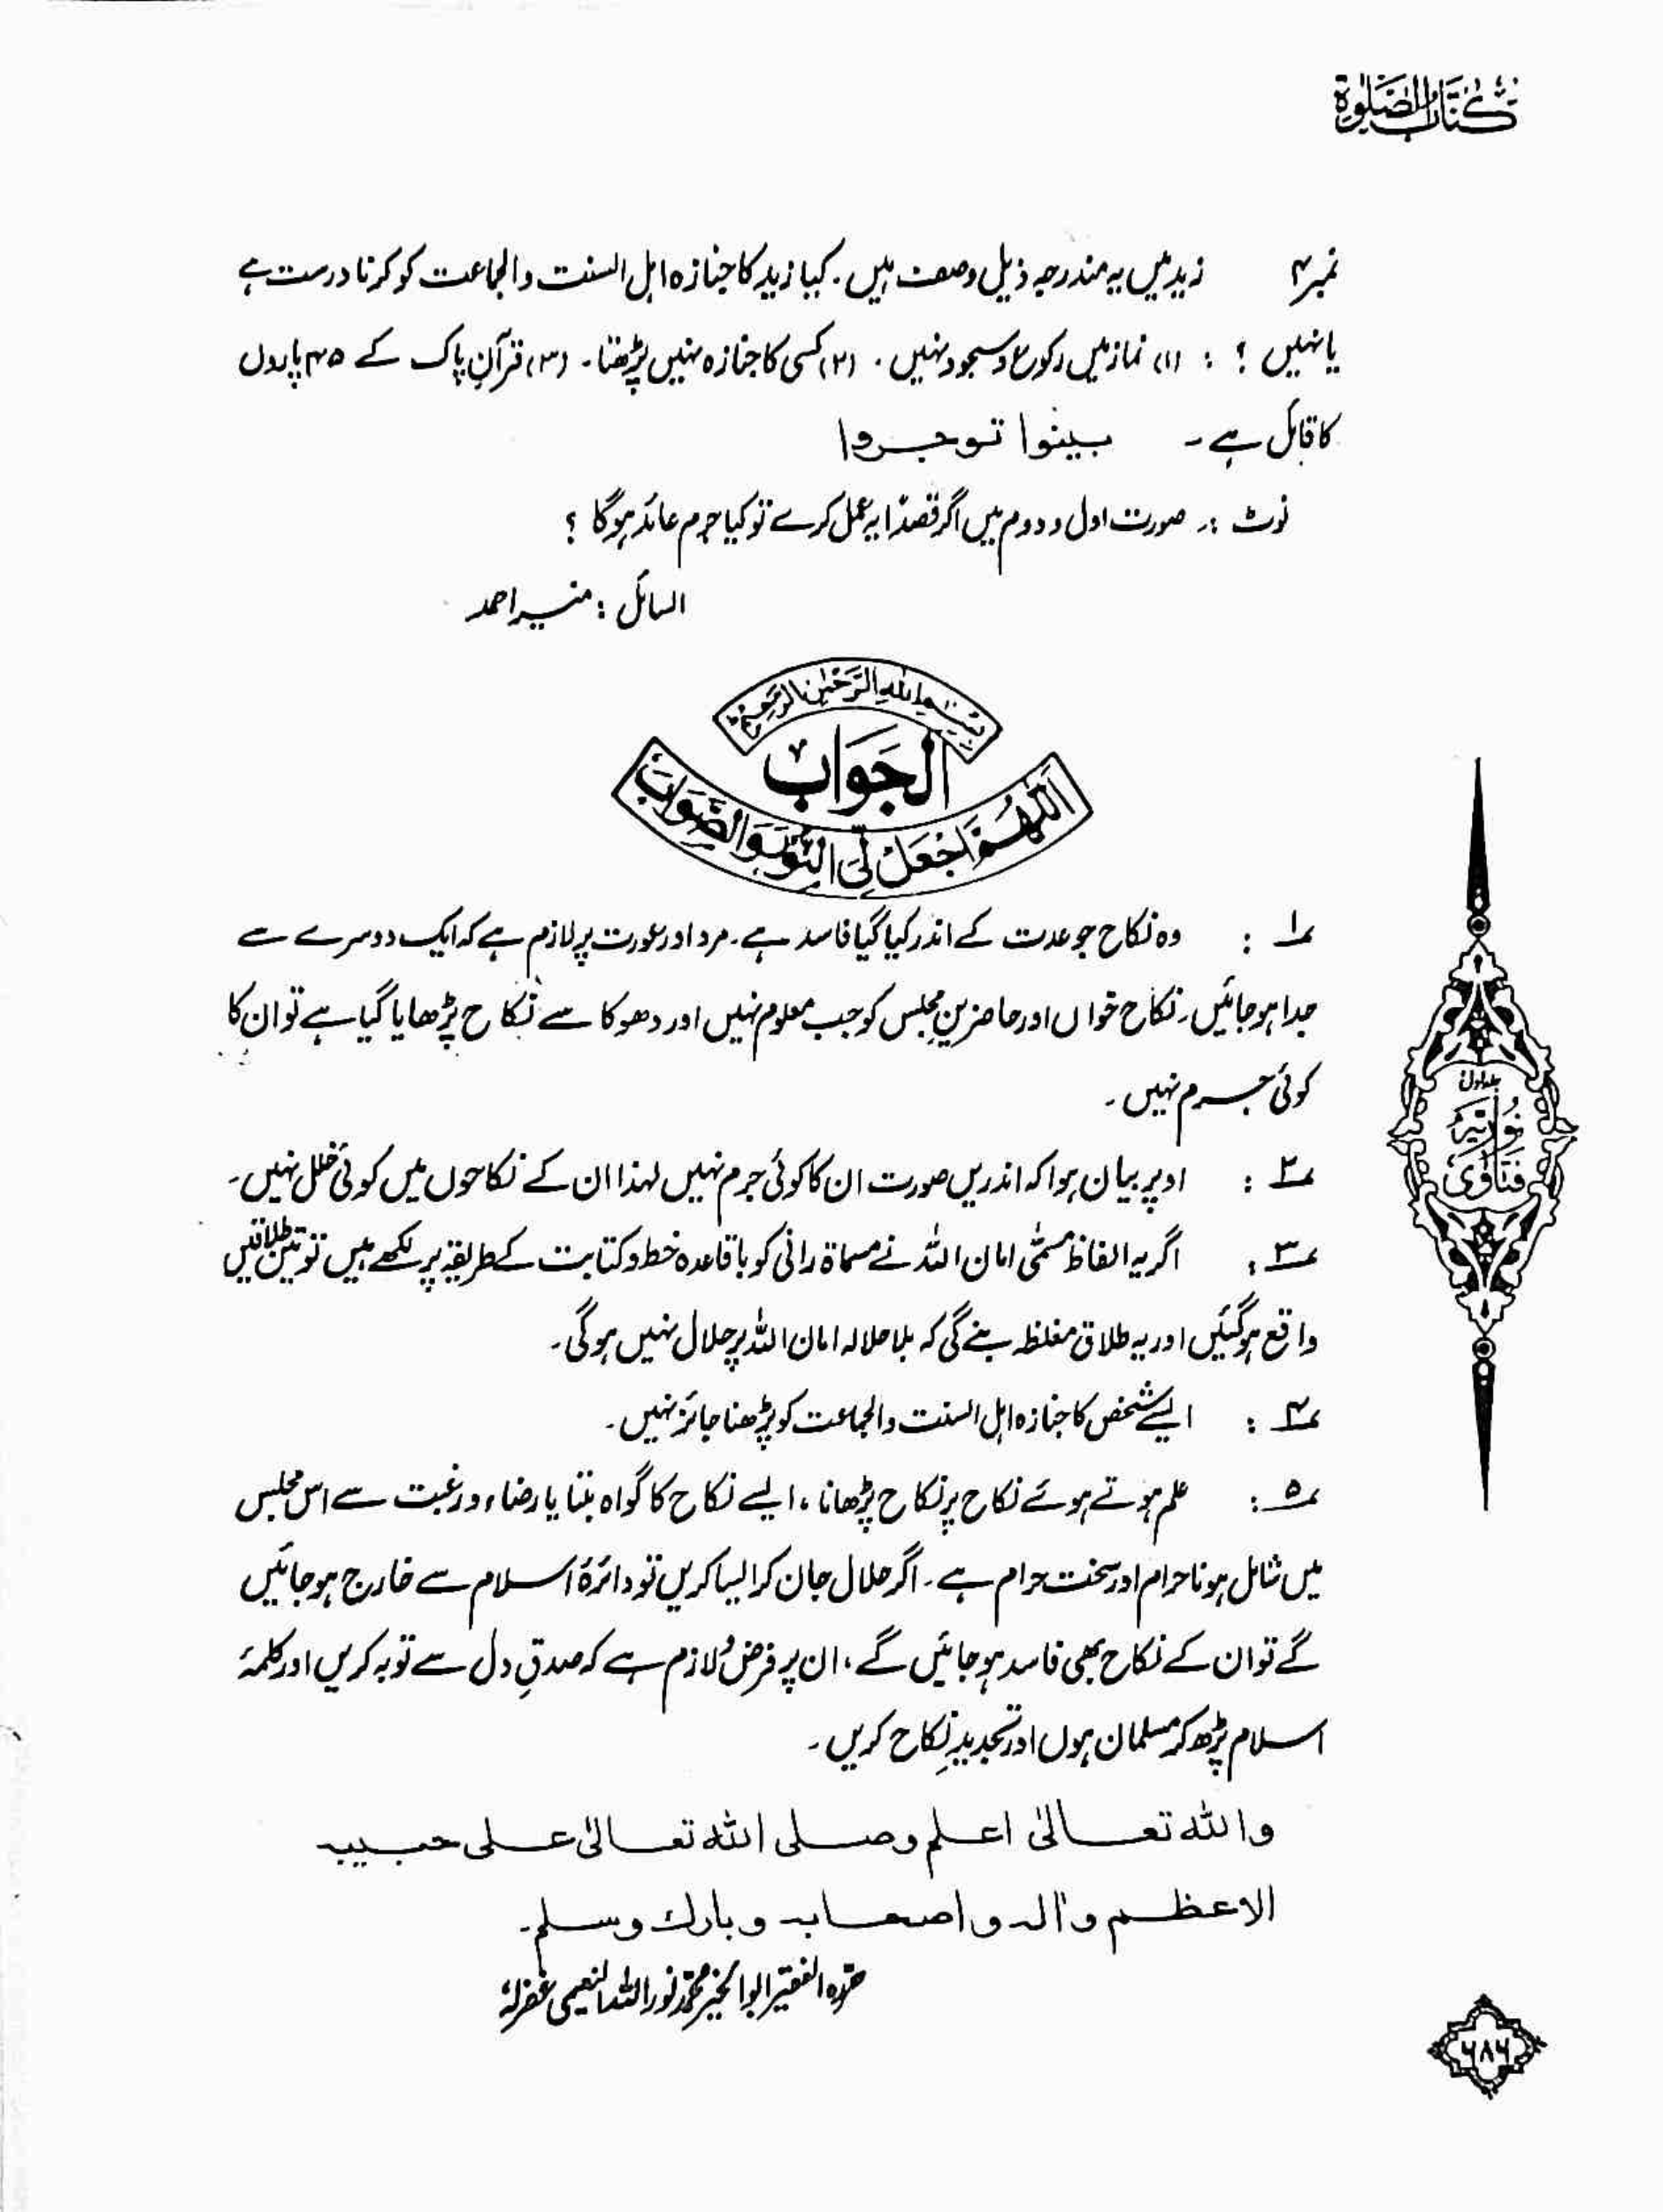 كتاب الصلوة
نمبر ۴ زید میں یہ مندرجہ ذیل وصف ہیں۔ کیا زید کا جنازہ اہل السنت والجماعت کو کرنا درست ہے
یا نہیں ؟ : (۱) نماز میں رکوع و سجود نہیں۔ (۲) کسی کا جنازہ نہیں پڑھتا۔ (۳) قرآنِ پاک کے ۴۵ پاروں
کا قائل ہے۔ بینوا توجروا
نوٹ :۔ صورت اول و دوم میں اگر قصدًا یہ عمل کرے تو کیا جرم عائد ہوگا ؟
السائل : منیر احمد
بِسْمِ اللهِ الرَّحْمٰنِ الرَّحِيْمِ
الجَوَاب
اَللّٰهُمَّ اجْعَلْ لِّيَ النُّوْرَ وَالصَّوَابَ
۱ : وہ نکاح جو عدت کے اندر کیا گیا فاسد ہے۔ مرد اور عورت پر لازم ہے کہ ایک دوسرے سے
جدا ہو جائیں۔ نکاح خواں اور حاضرینِ مجلس کو جب معلوم نہیں اور دھوکا سے نکاح پڑھایا گیا ہے تو ان کا
کوئی جرم نہیں۔
۲ : اوپر بیان ہوا کہ اندریں صورت ان کا کوئی جرم نہیں لہذا ان کے نکاحوں میں کوئی خلل نہیں۔
۳ : اگر یہ الفاظ مسمّٰی امان اللہ نے مسماۃ رانی کو باقاعدہ خط و کتابت کے طریقہ پر لکھے ہیں تو تین طلاقیں
واقع ہوگئیں اور یہ طلاق مغلظہ بنے گی کہ بلا حلالہ امان اللہ پر حلال نہیں ہوگی۔
۴ : ایسے شخص کا جنازہ اہل السنت والجماعت کو پڑھنا جائز نہیں۔
۵ : علم ہوتے ہوئے نکاح پر نکاح پڑھانا، ایسے نکاح کا گواہ بننا یا رضاء و رغبت سے اس مجلس
میں شامل ہونا حرام اور سخت حرام ہے۔ اگر حلال جان کر ایسا کریں تو دائرۂ اسلام سے خارج ہو جائیں
گے تو ان کے نکاح بھی فاسد ہو جائیں گے، ان پر فرض و لازم ہے کہ صدقِ دل سے توبہ کریں اور کلمۂ
اسلام پڑھ کر مسلمان ہوں اور تجدیدِ نکاح کریں۔
واللہ تعالیٰ اعلم وصلی اللہ تعالیٰ علی حبیبہ
الاعظم واٰلہ واصحابہ وبارک وسلم۔
حرّرہ الفقیر ابوالخیر محمد نور اللہ النعیمی غفرلہٗ
جلد اول
نُوریّہ
فتاوٰی
۶۸۶